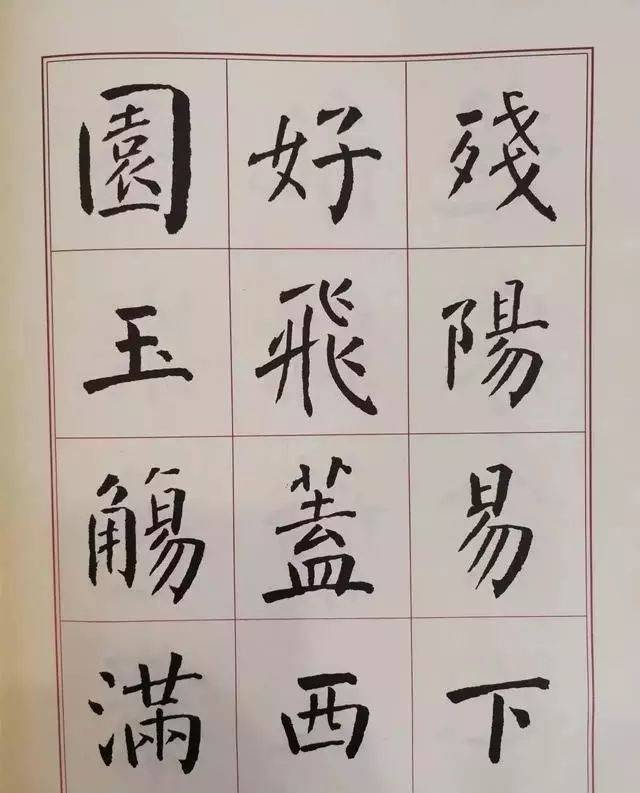 殘陽易下
好飛蓋西
園玉觴滿